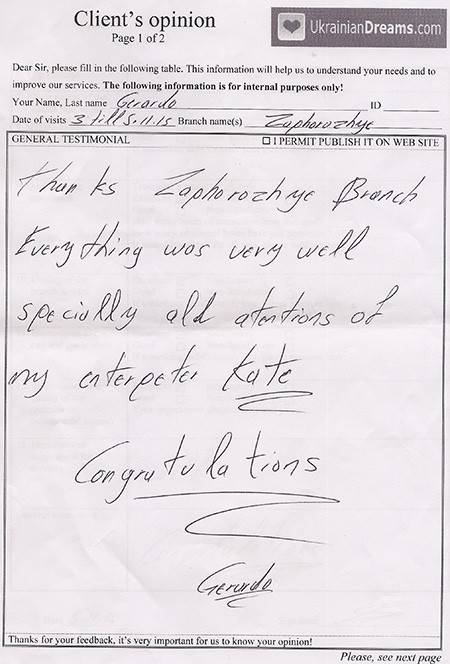 Client's opinion
Page 1 of 2
UkrainianDreams.com
Dear Sir, please fill in the following table. This information will help us to understand your needs and to
improve our services. The following information is for internal purposes only!
Your Name, Last name Gerardo ID
Date of visits 3 till 5.11.15 Branch name(s) Zaphorozhye
GENERAL TESTIMONIAL ☐ I PERMIT PUBLISH IT ON WEB SITE
Thanks Zaphorozhye Branch
Everything was very well
specially all atentions of
my enterpeter Kate
Congratulations
Gerardo
Thanks for your feedback, it's very important for us to know your opinion!
Please, see next page